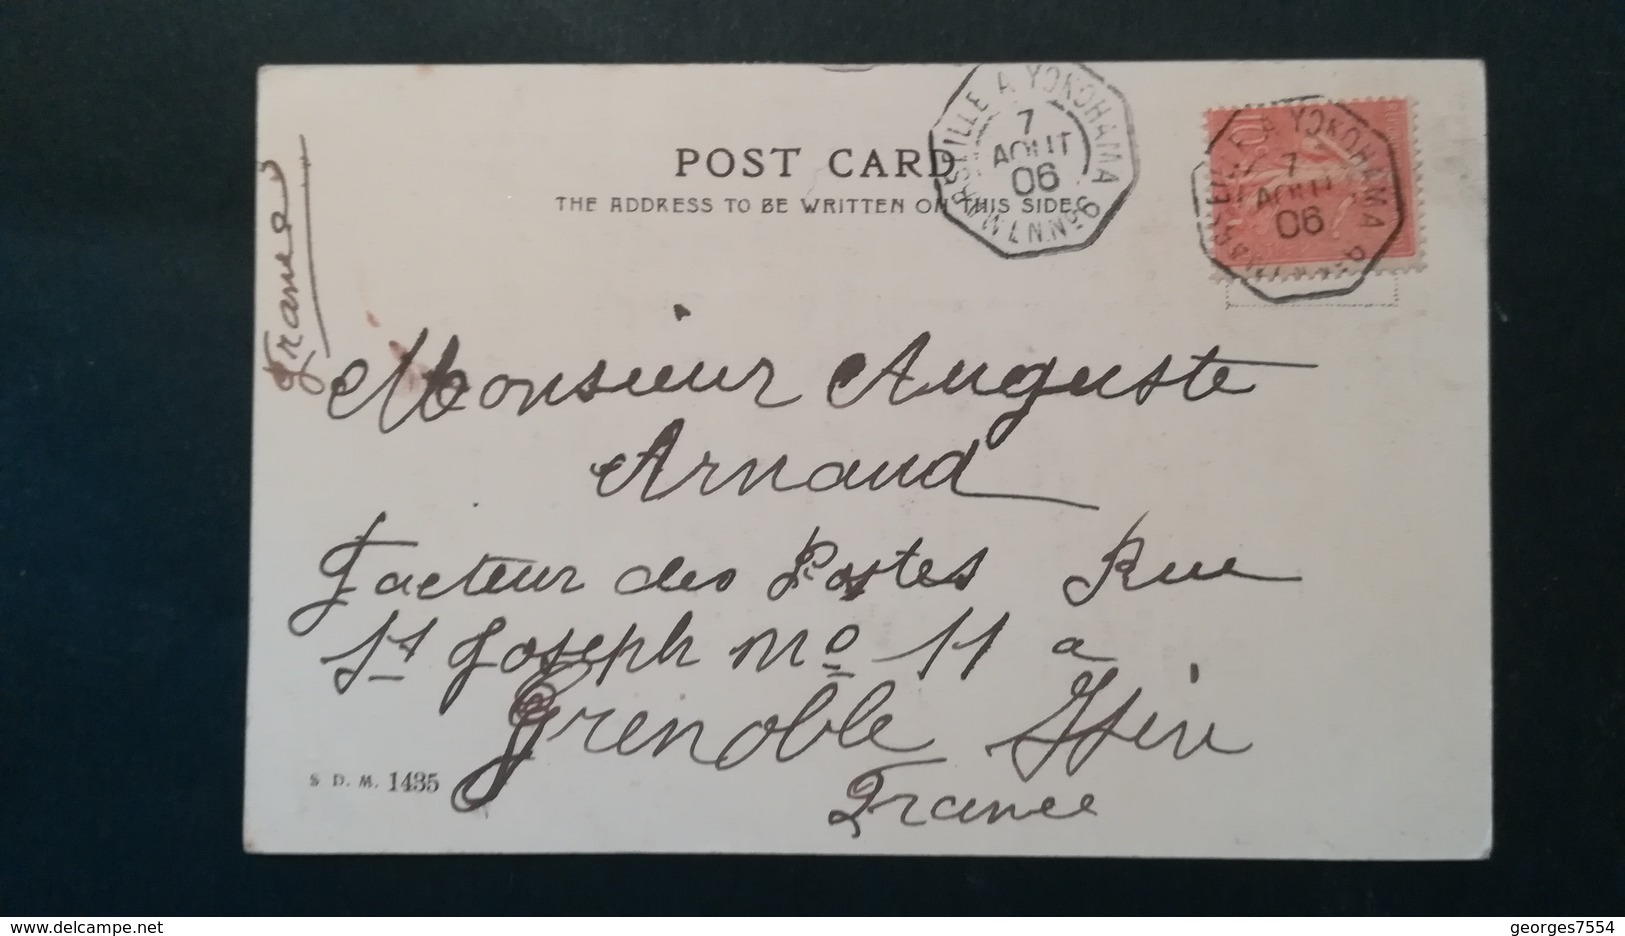 POST CARD
THE ADDRESS TO BE WRITTEN ON THIS SIDE
MARSEILLE A YOKOHAMA
7
AOUT
06
YOKOHAMA
7
AOUT
06
France
Monsieur Auguste
Arnaud
Facteur des Postes Rue
St Joseph No 11 a
Grenoble Isère
France
S. D. M. 1435
delcampe.net
georges7554